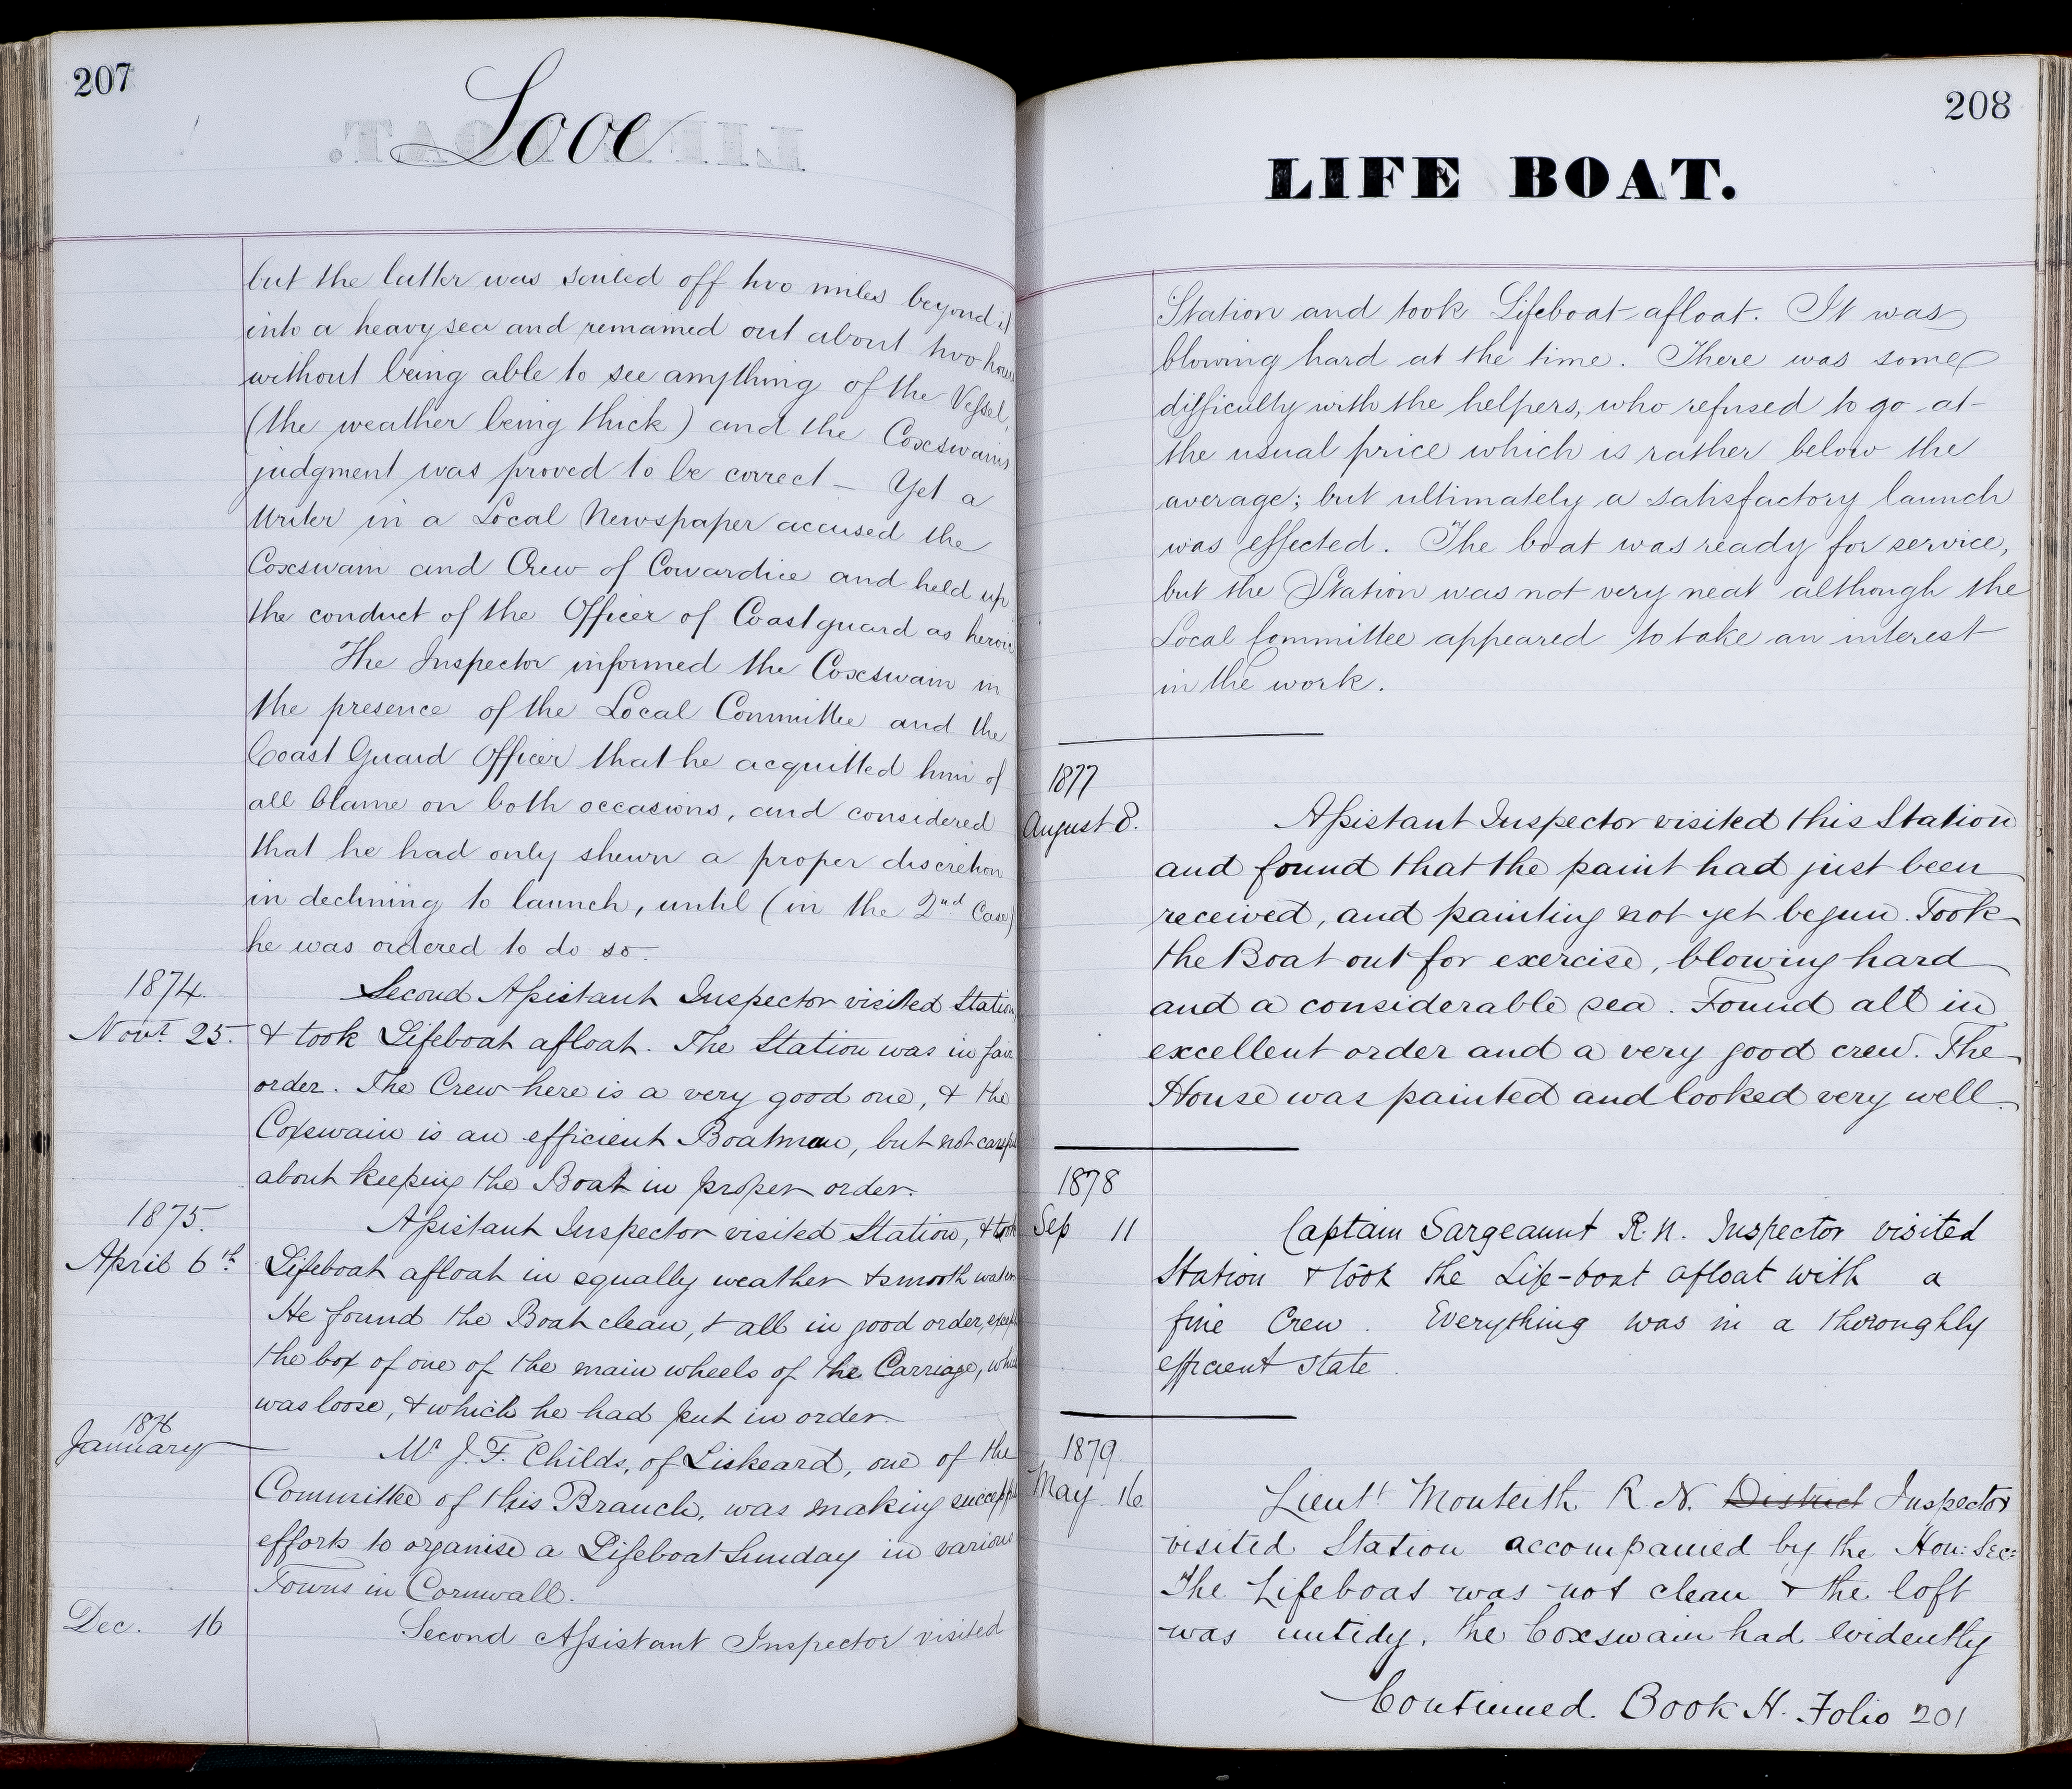 207
Looe
but the latter was sailed off two miles beyond it
into a heavy sea and remained out about two hours
without being able to see anything of the Vessel,
(the weather being thick) and the Coxswains
judgment was proved to be correct — Yet a
Writer in a Local Newspaper accused the
Coxswain and Crew of Cowardice and held up
the conduct of the Officer of Coastguard as heroic
The Inspector informed the Coxswain in
the presence of the Local Committee and the
Coast Guard Officer that he acquitted him of
all blame on both occasions, and considered
that he had only shewn a proper discretion
in declining to launch, until (in the 2nd Case)
he was ordered to do so.
1874.
Novr. 25.
Second Assistant Inspector visited Station,
& took Lifeboat afloat. The Station was in fair
order. The Crew here is a very good one, & the
Coxswain is an efficient Boatman, but not careful
about keeping the Boat in proper order.
1875.
April 6th
Assistant Inspector visited Station, & took
Lifeboat afloat in squally weather & smooth water.
He found the Boat clean, & all in good order, except
the box of one of the main wheels of the Carriage, which
was loose, & which he had put in order.
1876
January
Mr J. F. Childs, of Liskeard, one of the
Committee of this Branch, was making successful
efforts to organise a Lifeboat Sunday in various
Towns in Cornwall.
Dec. 16
Second Assistant Inspector visited
208
LIFE BOAT.
Station and took Lifeboat afloat. It was
blowing hard at the time. There was some
difficulty with the helpers, who refused to go at
the usual price which is rather below the
average; but ultimately a satisfactory launch
was effected. The boat was ready for service,
but the Station was not very neat although the
Local Committee appeared to take an interest
in the work.
1877
August 8.
Assistant Inspector visited this Station
and found that the paint had just been
received, and painting not yet begun. Took
the Boat out for exercise, blowing hard
and a considerable sea. Found all in
excellent order and a very good crew. The
House was painted and looked very well.
1878
Sep 11
Captain Sargeaunt R.N. Inspector visited
Station & took the Life-boat afloat with a
fine Crew. Everything was in a thoroughly
efficient state.
1879.
May 16
Lieutt Monteith R.N. District Inspector
visited Station accompanied by the Hon: Sec:
The Lifeboat was not clean & the loft
was untidy, the Coxswain had evidently
Continued. Book H. Folio 201